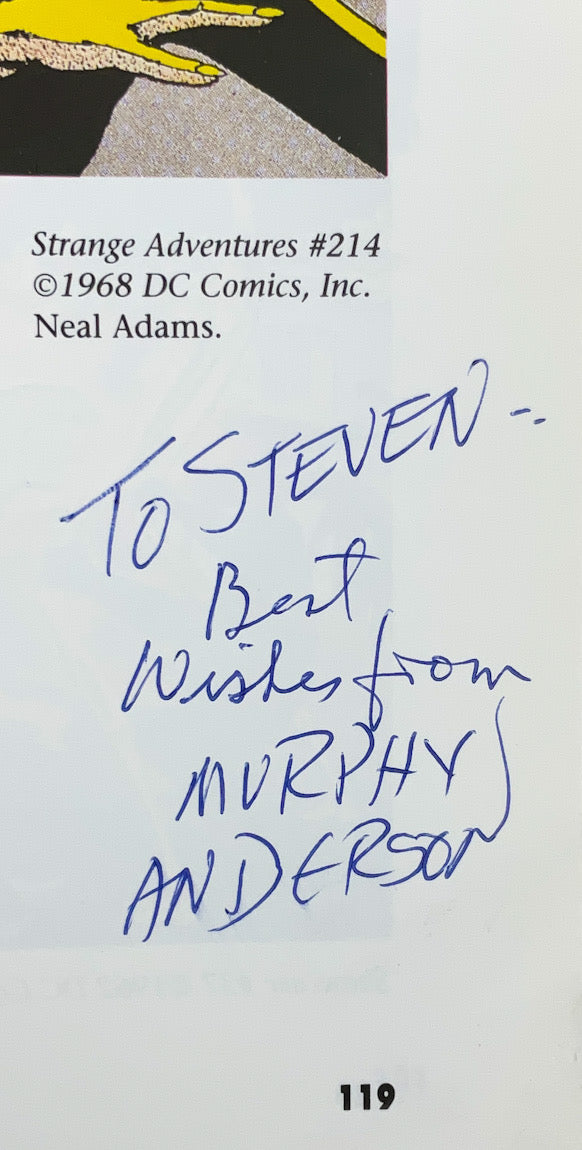 Strange Adventures #214
©1968 DC Comics, Inc.
Neal Adams.
TO STEVEN --
Best
Wishes from
MURPHY
ANDERSON
119